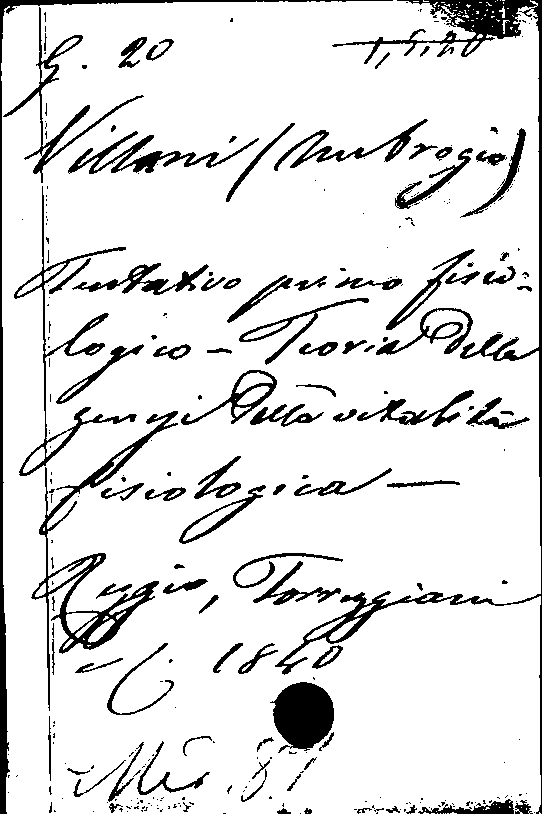 G. 20 1,5,20
Villani (Ambrogio)
Tentativo primo fisio-
logico - Teoria della
genesi della vitalità
fisiologica —
Reggio, Torreggiani
e C. 1840
Mis. 87